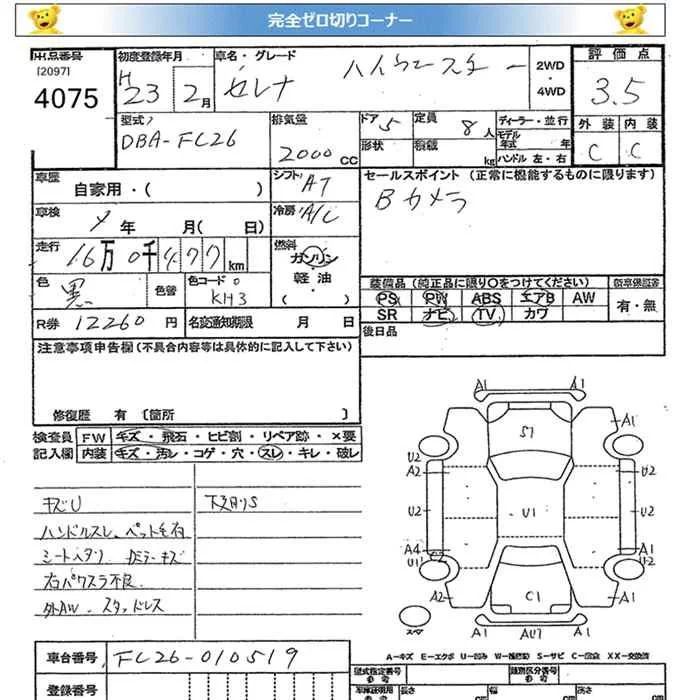 完全ゼロ切りコーナー
出品番号 [2097] 4075
初度登録年月 H 23 2月
車名・グレード セレナ ハイウェースター
2WD・4WD
評価点 3.5
外装 内装
C C
型式 DBA-FC26
排気量 2000 CC
ドア 5
定員 8人
形状 積載 kg
ディーラー・並行
モデル年式 年
ハンドル 左・右
車歴 自家用・( )
シフト AT
セールスポイント (正常に機能するものに限ります)
Bカメラ
車検 年 月( 日)
冷房 A/C
走行 16万0千477km
燃料 ガソリン 軽油・( )
色 黒 色替 色コード KH3
装備品 (純正品に限り○をつけてください)
新車保証書
PS PW ABS エアB AW
SR ナビ TV カワ
有・無
R券 12260円
名変通知期限 月 日
後日品
注意事項申告欄(不具合内容等は具体的に記入して下さい)
修復歴 有 〔箇所 〕
検査員 FW キズ・飛石・ヒビ割・リペア跡・×要
記入欄 内装 キズ・汚レ・コゲ・穴・スレ・キレ・破レ
キズU
下廻りS
ハンドルスレ、ペット毛有
シートヘタリ
キズ
右パワスラ不良
外AW.スタッドレス
A1 A1
S1 A1
U2 U2
A2 A2
U2 U1 U2
A4 A1
U2 U2
C1
A2 A2
スペア A1 AU7 A1
A-キズ E-エクボ U-凹み W-補修跡 S-サビ C-腐食 XX-交換済
車台番号 FC26-010519
登録番号
型式指定番号 参考
類別区分番号 参考
車庫証明用 参考
長さ cm
幅 cm
高さ cm